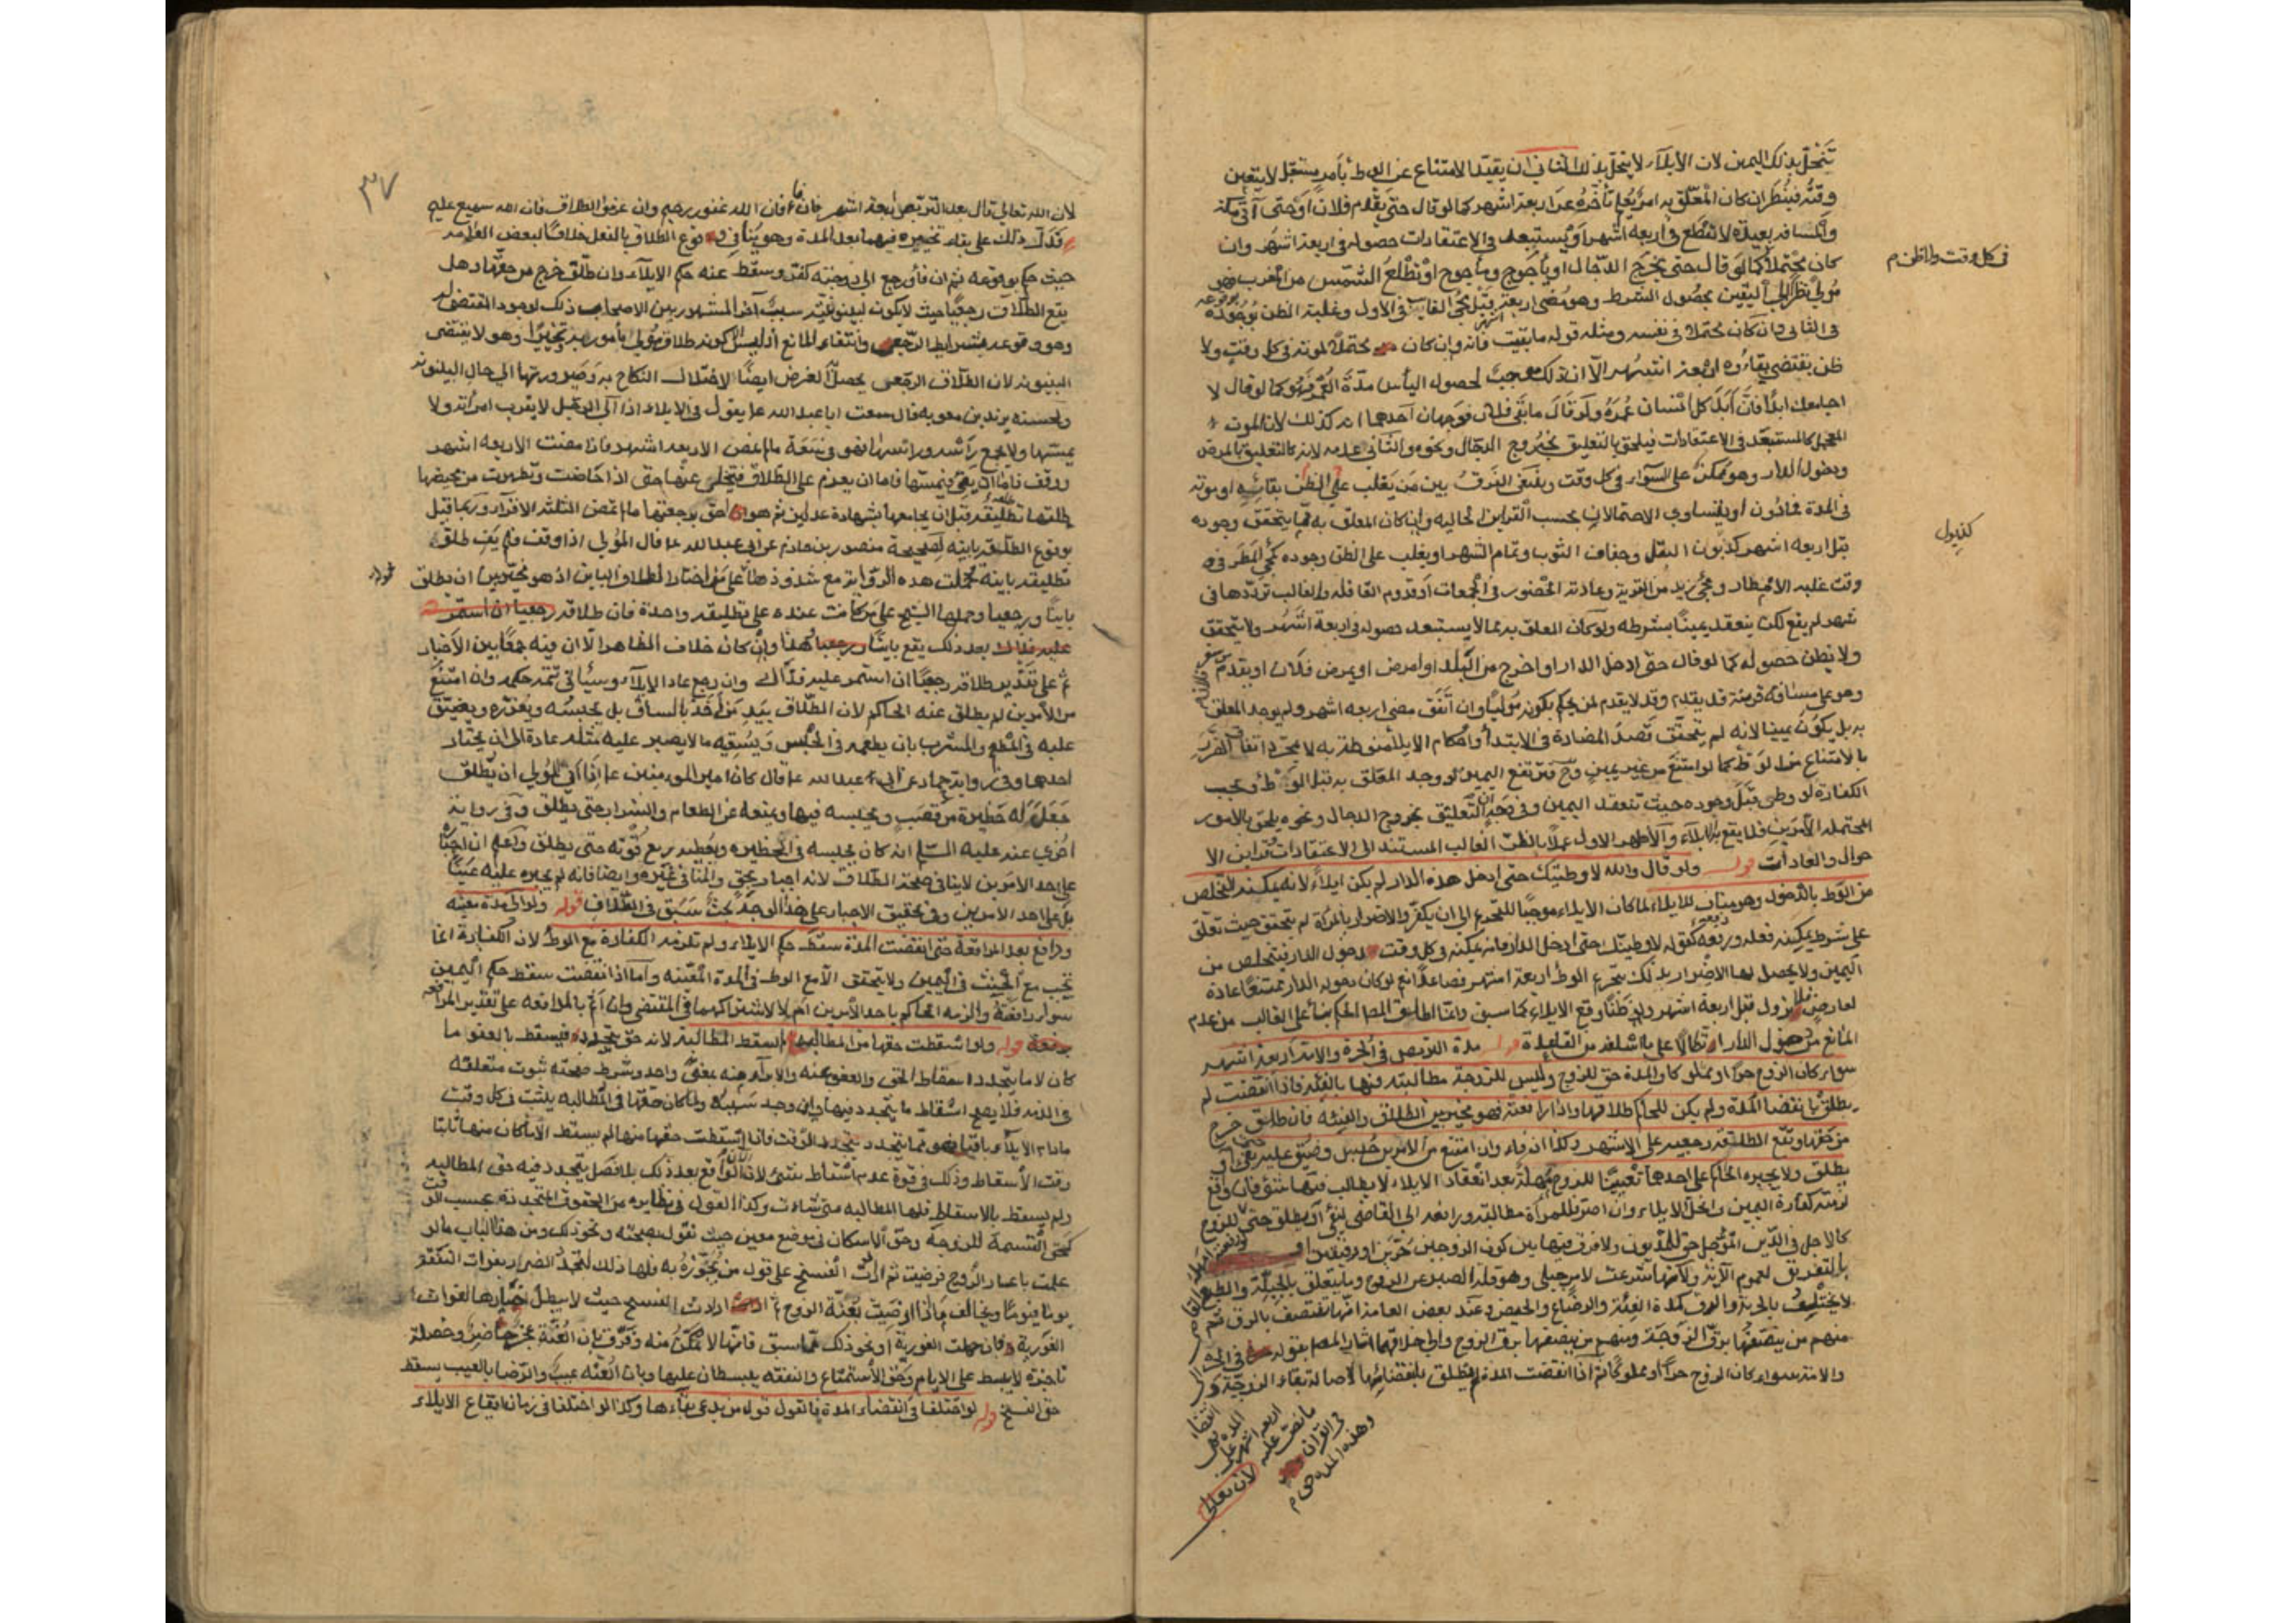 تنحل بذلك اليمين لان الايلاء لا ينحل بذلك الثاني ان يقيد الامتناع عن الوطئ بأمر مستقبل لا يتعين
وقته فينظر ان كان المعلق به امر يعلم تأخره عن اربعة اشهر كما لو قال حتى يقدم فلان او حتى آتي مكة
والمسافة بعيدة لا تقطع في اربعه اشهر او يستبعد في الاعتقادات حصوله في اربعة اشهر وان
كان محتملا كما لو قال حتى يخرج الدجال او يأجوج ومأجوج او تطلع الشمس من المغرب فهو
مولي نظرا الى اليقين بحصول الشرط وهو مضي اربعة اشهر قبل مجئ الغايب في الاول وغلبة الظن بوجوده
في الثاني وان كان محتملا في نفسه ومثله قوله ما بقيت فانه وان كان محتملا لموته في كل وقت ولا
في كل وقت ولا ظن م
ظن يقتضي بقاءه اربعة اشهر الا ان ذلك موجب لحصول اليأس مدة العمر فهو كما لو قال لا
اجامعك ابدا فان ابد كل انسان عمره ولو قال ما بقي فلان فوجهان احدهما انه كذلك لان الموت
المعجل كالمستبعد في الاعتقادات فيلحق بالتعليق بخروج الدجال ونحوه والثاني عدمه لانه كالتعليق بالمرض
ودخول الدار وهو ممكن على السواء في كل وقت وينبغي الفرق بين من يغلب على الظن بقائه او موته
في المدة فانون او يتساوي الاحتمالان بحسب القراين الحاليه وان كان المعلق به مما يتحقق وجوده
كذبول
قبل اربعه اشهر كذبول البقل وجفاف الثوب وتمام الشهر او يغلب على الظن وجوده كمجئ المطر في
وقت غلبه الامطار ومجئ زيد من القرية وعادته الحضور في الجمعات او قدوم القافله والغالب ترددها في
شهر لم يقع لكن ينعقد يمينا بشرطه ولو كان المعلق به مما لا يستبعد حصوله في اربعة اشهر ولا يتحقق
ولا يظن حصوله كما لو قال حتى ادخل الدار او اخرج من البلد او امرض او يمرض فلان او يقدم من سفره
وهو على مسافة قريبة قد يقدم وقد لا يقدم لم يحكم بكونه موليا وان اتفق مضي اربعه اشهر ولم يوجد المعلق
به بل يكون يمينا لانه لم يتحقق قصد المضارة في الابتدا واحكام الايلاء منوطة به لا مجرد اتفاق الضرر
بالامتناع من الوطئ كما لو امتنع من غير يمين وح فترتفع اليمين لو وجد المعلق به قبل الوطئ ويجب
الكفارة لو وطئ قبل وجوده حيث تنعقد اليمين وفي وجه ان التعليق بخروج الدجال ونحوه يلحق بالامور
المحتمله الامرين فلا يقع بها الايلاء والاظهر الاول عملا بالظن الغالب المستند الى الاعتقادات وقراين الا
حوال والعادات قوله ولو قال والله لا وطيتك حتى ادخل هذه الدار لم يكن ايلاء لانه يمكنه التخلص
من الوطئ بالدخول وهو مناف للايلاء لما كان الايلاء موجبا للتحريم الى ان يكفر والاضرار بالمراة لم يتحقق حيث تعلق
على شرط يمكنه فعله ورفعه كقوله لا وطيتك حتى ادخل الدار فانه يمكنه في كل وقت دخول الدار فيتخلص من
اليمين ولا يحصل لها الاضرار بذلك بتحريم الوطئ اربعة اشهر فصاعدا نعم لو كان دخوله الدار ممتنعا عادة
لعارض لا يزول قبل اربعة اشهر ولو ظنا وقع الايلاء كما سبق وانما اطلق المص الحكم بناء على الغالب من عدم
المانع من دخول الدار اتكالا على ما اسلفه من القاعدة قوله مدة التربص في الحرة والامة اربعة اشهر
سواء كان الزوج حرا او مملوكا والمدة حق للزوج وليس للزوجة مطالبته فيها بالفئة فاذا انقضت لم
يطلق بانقضا المدة ولم يكن للحاكم طلاقها واذا رافعته فهو مخير بين الطلاق والفئة فان طلق خرج
من حقها ويقع الطلقة رجعية على الاشهر وكذا ان فاء وان امتنع من الامرين حبس وضيق عليه حتى يفئ او
يطلق ولا يجبره الحاكم على احدهما تعيينا للزوج مهلة بعد انعقاد الايلاء لا يطالب فيها بشئ فان واقع
لزمته كفارة اليمين وانحل الايلاء وان اصر فللمراة مطالبته ورافعه الى القاضي ليفئ او يطلق حق للزوج
كالاجل في الدين المؤجل حق للمديون ولا فرق فيها بين كون الزوجين حرين او رقيقين او
بالتفريق لعموم الآية ولانها شرعت لامر جبلي وهو قلة الصبر عن الزوج وما يتعلق بالجبلة والطبع
لا يختلف بالحرية والرق كمدة العنة والرضاع والحيض وعند بعض العامة انها تنتصف بالرق ثم
منهم من ينصفها برق الزوجة ومنهم من ينصفها برق الزوج والى خلافهما اشار المص بقوله في الحرة
والامة سواء كان الزوج حرا او مملوكا ثم اذا انقضت المدة لم يطلق بانقضائها لاصالة بقاء الزوجية
انقضاء
المدة
اربعة اشهر
ما نص عليه
في القران
وهذه المده حق م
لان تعالى
٣٧
لان الله تعالى قال بعد التربص اربعة اشهر فان فاؤا فان الله غفور رحيم وان عزموا الطلاق فان الله سميع عليم
فدل ذلك على بقاء تخييره فيهما بعد المدة وهو ينافي وقوع الطلاق بالفعل خلافا لبعض العامة
حيث حكم بوقوعه ثم ان فاء ورجع الى زوجته كفر وسقط عنه حكم الايلاء وان طلق خرج من حقها وهل
يقع الطلاق رجعيا حيث لا يكون لبينونته سبب آخر المشهور بين الاصحاب ذلك لوجود المقتضي له
وهو وقوعه بشرايط الرجعي وانتفاء المانع اذ ليس الا كونه طلاق مولي مأمور به تخييرا وهو لا يقتضي
البينونه لان الطلاق الرجعي يحصل الغرض ايضا لاختلال النكاح به وصيرورتها الى حال البينونه
ولحسنه بريد بن معويه قال سمعت ابا عبد الله ع يقول في الايلاء اذا آلى الرجل لا يقرب امراته ولا
يمسها ولا يجمع رأسه وراسها فهو في سعة ما لم يمض الاربعه اشهر فاذا مضت الاربعه اشهر
ووقف فاما ان يفئ فيمسها واما ان يعزم على الطلاق فيتخلى عنها حتى اذا حاضت وتطهرت من محيضها
طلقها تطليقة قبل ان يجامعها بشهادة عدلين ثم هو احق برجعتها ما لم تمض الثلثه الاقراء وربما قيل
بوقوع الطلقة باينة لصحيحة منصور بن حازم عن ابي عبد الله ع قال المؤلي اذا وقف فلم يفئ طلق
تطليقه باينة وحملت هذه الرواية مع شذوذها على من اختار الطلاق الباين اذ هو مخير بين ان يطلق
باينا ورجعيا وحملها الشيخ على من كانت عنده على تطليقه واحدة فان طلاقه رجعيا ان استمر
عليه فذاك بعد ذلك يقع باينا ورجعيا وهذا وان كان خلاف الظاهر الا ان فيه جمعا بين الاخبار
ثم على تقدير طلاقه رجعيا ان استمر عليه فذاك وان رجع عاد الايلاء وسيأتي تتمة حكمه وان امتنع
من الامرين لم يطلق عنه الحاكم لان الطلاق بيد من اخذ بالساق بل يحبسه ويعزره ويضيق
عليه في المطعم والمشرب بان يطعمه في الحبس ويسقيه ما لا يصبر عليه مثله عادة الى ان يختار
احدهما وفي رواية حماد عن ابي عبد الله ع قال كان امير المومنين ع اذا ابى المولي ان يطلق
جعل له حظيرة من قصب ويحبسه فيها ويمنعه عن الطعام والشراب حتى يطلق وفي رواية
اخرى عنه عليه السلم انه كان يحبسه في الحظيره ويعطيه ربع قوته حتى يطلق واعلم ان اجباره
على احد الامرين لا ينافي صحة الطلاق لانه اجبار بحق والمنافي غيره وايضا فانه لم يجبره عليه عينا
بل على احد الامرين وفي تحقيق الاجبار على هذا الوجه بحث سبق في الطلاق قوله ولو آلى مدة معينه
ودافع بعد المرافعة حتى انقضت المدة سقط حكم الايلاء ولم تلزمه الكفارة مع الوطئ لان الكفارة انما
تجب مع الحنث في اليمين ولا يتحقق الا مع الوطئ في المدة المعينه واما اذا انقضت سقط حكم اليمين
سواء رافعته والزمه الحاكم باحد الامرين ام لا لاشتراكهما في المقتضي وان اثم بالمدافعه على تقدير المرافعه
قوله ولو اسقطت حقها من المطالبه لم تسقط المطالبة لانه حق يتجدد فيسقط بالعفو ما
كان لا ما يتجدد اسقاط الحق والعفو عنه والابراء منه بمعنى واحد وشرط صحته ثبوت متعلقه
في الذمه فلا يصح اسقاط ما يتجدد فيها وان وجد سببه ولما كان حقها في المطالبه يثبت في كل وقت
مادام الايلاء باقيا فهو مما يتجدد بتجدد الوقت فاذا اسقطت حقها منها لم يسقط الا ما كان منها ثابتا
وقت الاسقاط وذلك في قوة عدم اسقاط شئ لان الواقع بعد ذلك بلا فصل يتجدد فيه حق المطالبه
ولم يسقط بالاسقاط فلها المطالبه متى شاءت وكذا القول في نظايره من الحقوق المتجددة بحسب الوقت
كحق القسمة للزوجة وحق الاسكان في موضع معين حيث نقول بصحته ونحو ذلك ومن هذا الباب ما لو
علمت باعسار الزوج فرضيت ثم ارادت الفسخ على قول من يجوزه به فلها ذلك لتجدد الضرر بفوات النفقة
يوما فيوما ويخالف ما اذا رضيت بعنة الزوج ثم ارادت الفسخ حيث لا يبطل خيارها لفوات
الفورية فان جهلت الفورية او نحو ذلك مما سبق فانها لا تمكن منه وفرق بان العنة عجز حاضر وخصلة
ناجزة لا يبسط على الايام وحق الاستمتاع والنفقه يبسطان عليها وبان العنه عيب والرضا بالعيب يسقط
حق الفسخ قوله لو اختلفا في انقضاء المدة فالقول قول من يدعي بقاءها وكذا لو اختلفا في زمان ايقاع الايلاء